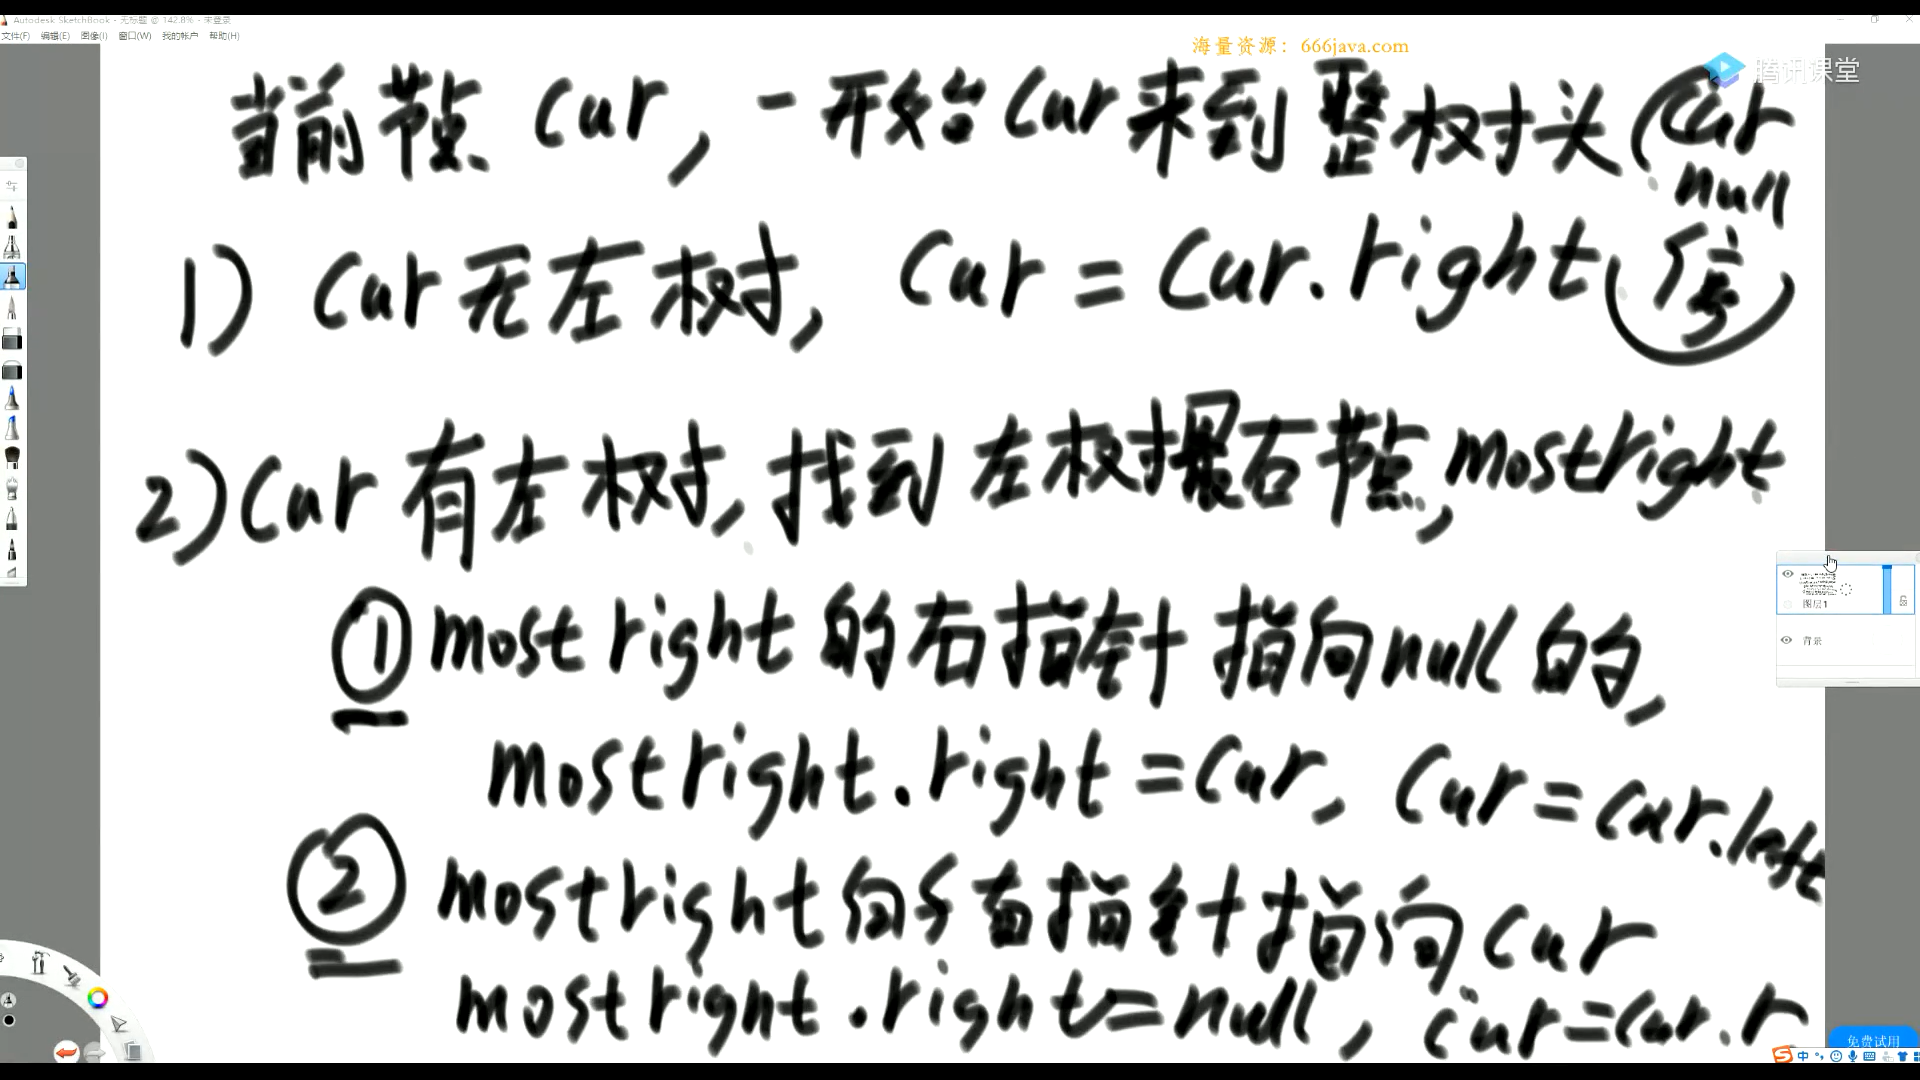 Autodesk SketchBook - 无标题 @ 142.8% - 未登录
文件(F) 编辑(E) 图像(I) 窗口(W) 我的帐户 帮助(H)
海量资源：666java.com
腾讯课堂
当前节点 cur，一开始cur来到整树头(cur
null
1) cur无左树， cur = cur.right 停)
2) cur有左树，找到左树最右节点，mostright
① mostright的右指针指向null的，
mostright.right = cur, cur = cur.left
② mostright的右指针指向cur
mostright.right = null, cur = cur.r
图层1
背景
免费试用
中